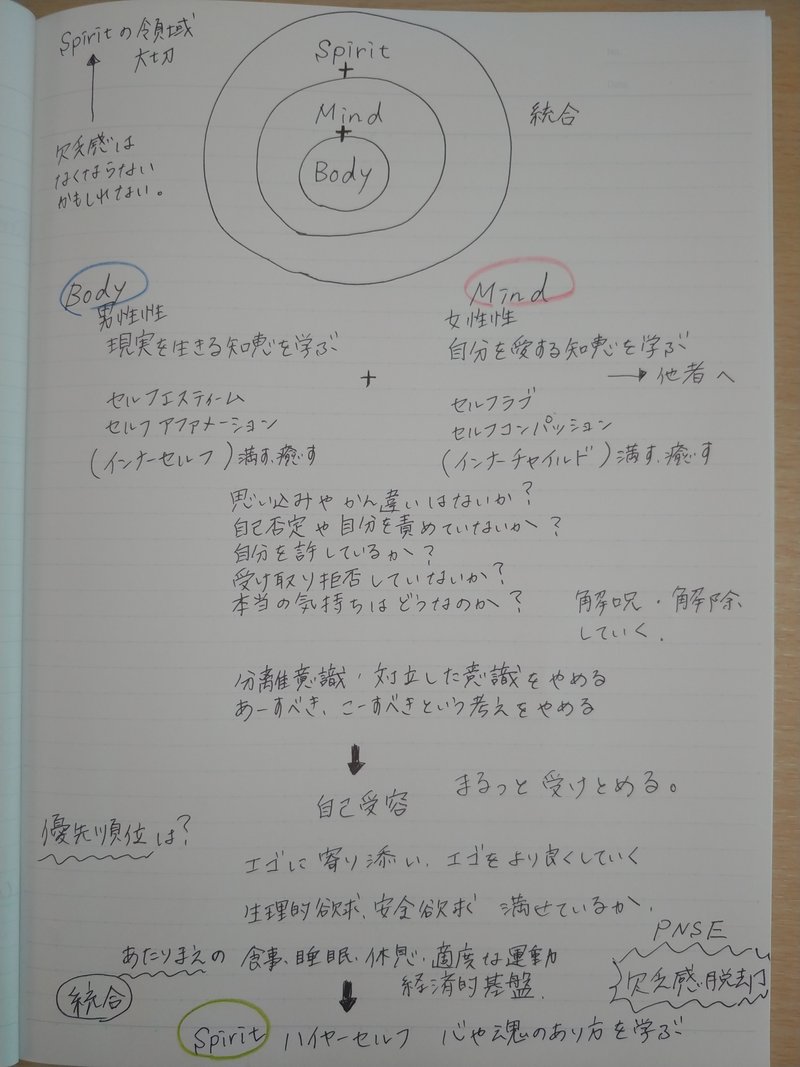 Spiritの領域
大切
欠乏感は
なくならない
かもしれない。
Spirit
+
Mind
+
Body
統合
Body
男性性
現実を生きる知恵を学ぶ
セルフエスティーム
セルフアファメーション
(インナーセルフ)満す、癒す
+
Mind
女性性
自分を愛する知恵を学ぶ
→他者へ
セルフラブ
セルフコンパッション
(インナーチャイルド)満す、癒す
思い込みやかん違いはないか?
自己否定や自分を責めていないか?
自分を許しているか?
受け取り拒否していないか?
本当の気持ちはどうなのか?
解呪・解除
していく.
分離意識・対立した意識をやめる
あーすべき、こーすべきという考えをやめる
自己受容
まるっと受けとめる。
優先順位は?
エゴに寄り添い、エゴをより良くしていく
生理的欲求、安全欲求 満せているか.
あたりまえの 食事、睡眠、休息、適度な運動
経済的基盤.
PNSE
欠乏感脱却
統合
Spirit ハイヤーセルフ 心や魂のあり方を学ぶ